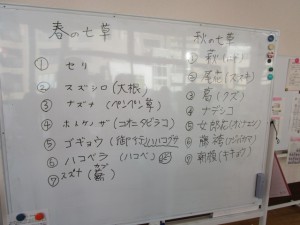 春の七草
① セリ
② スズシロ(大根)
③ ナズナ(ペンペン草)
④ ホトケノザ(コオニタビラコ)
⑤ ゴギョウ(御行)ハハコグサ
⑥ ハコベラ(ハコベ)
⑦ スズナ(蕪 カブ)
秋の七草
① 萩(ハギ)
② 尾花(ススキ)
③ 葛(クズ)
④ ナデシコ
⑤ 女郎花(オミナエシ)
⑥ 藤袴(フジバカマ)
⑦ 朝顔(キキョウ)